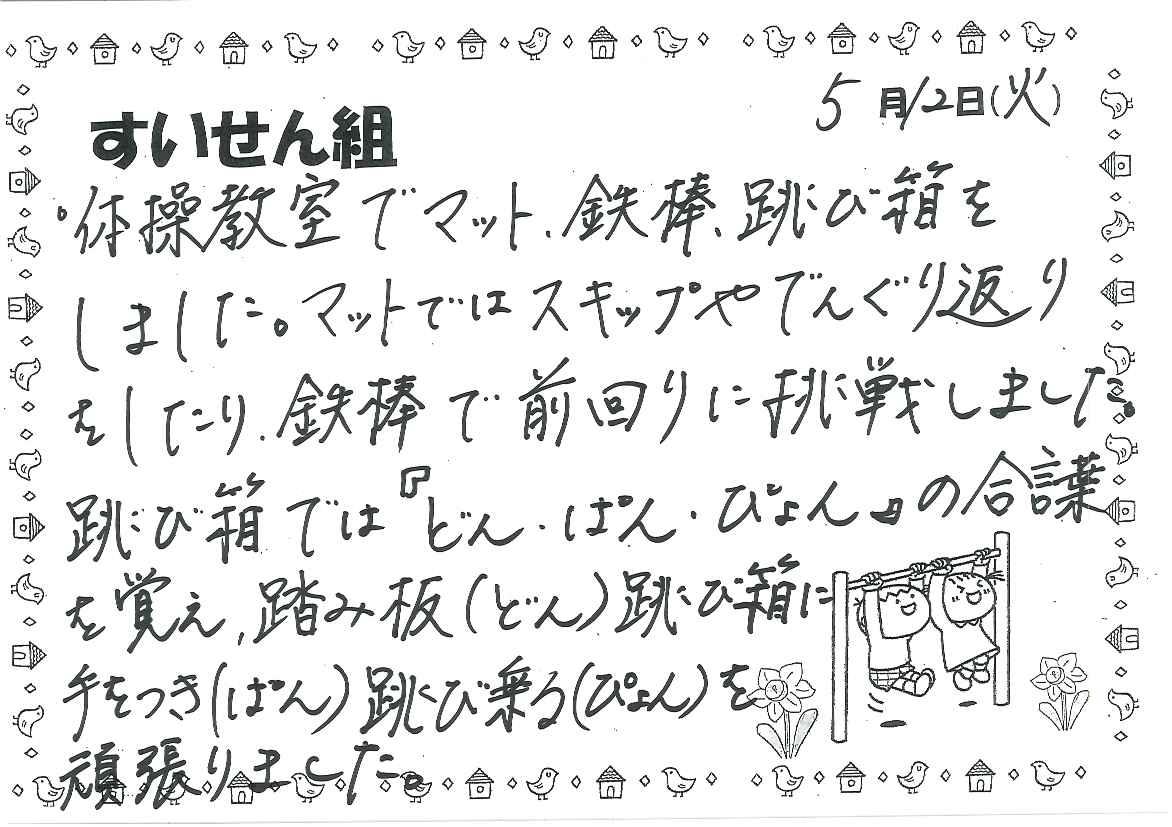 5月12日(火)
すいせん組
•体操教室でマット、鉄棒、跳び箱を
しました。マットではスキップやでんぐり返り
をしたり、鉄棒で前回りに挑戦しました。
跳び箱では『どん・ぱん・ぴょん』の合言葉
を覚え、踏み板(どん)跳び箱に
手をつき(ぱん)跳び乗る(ぴょん)を
頑張りました。